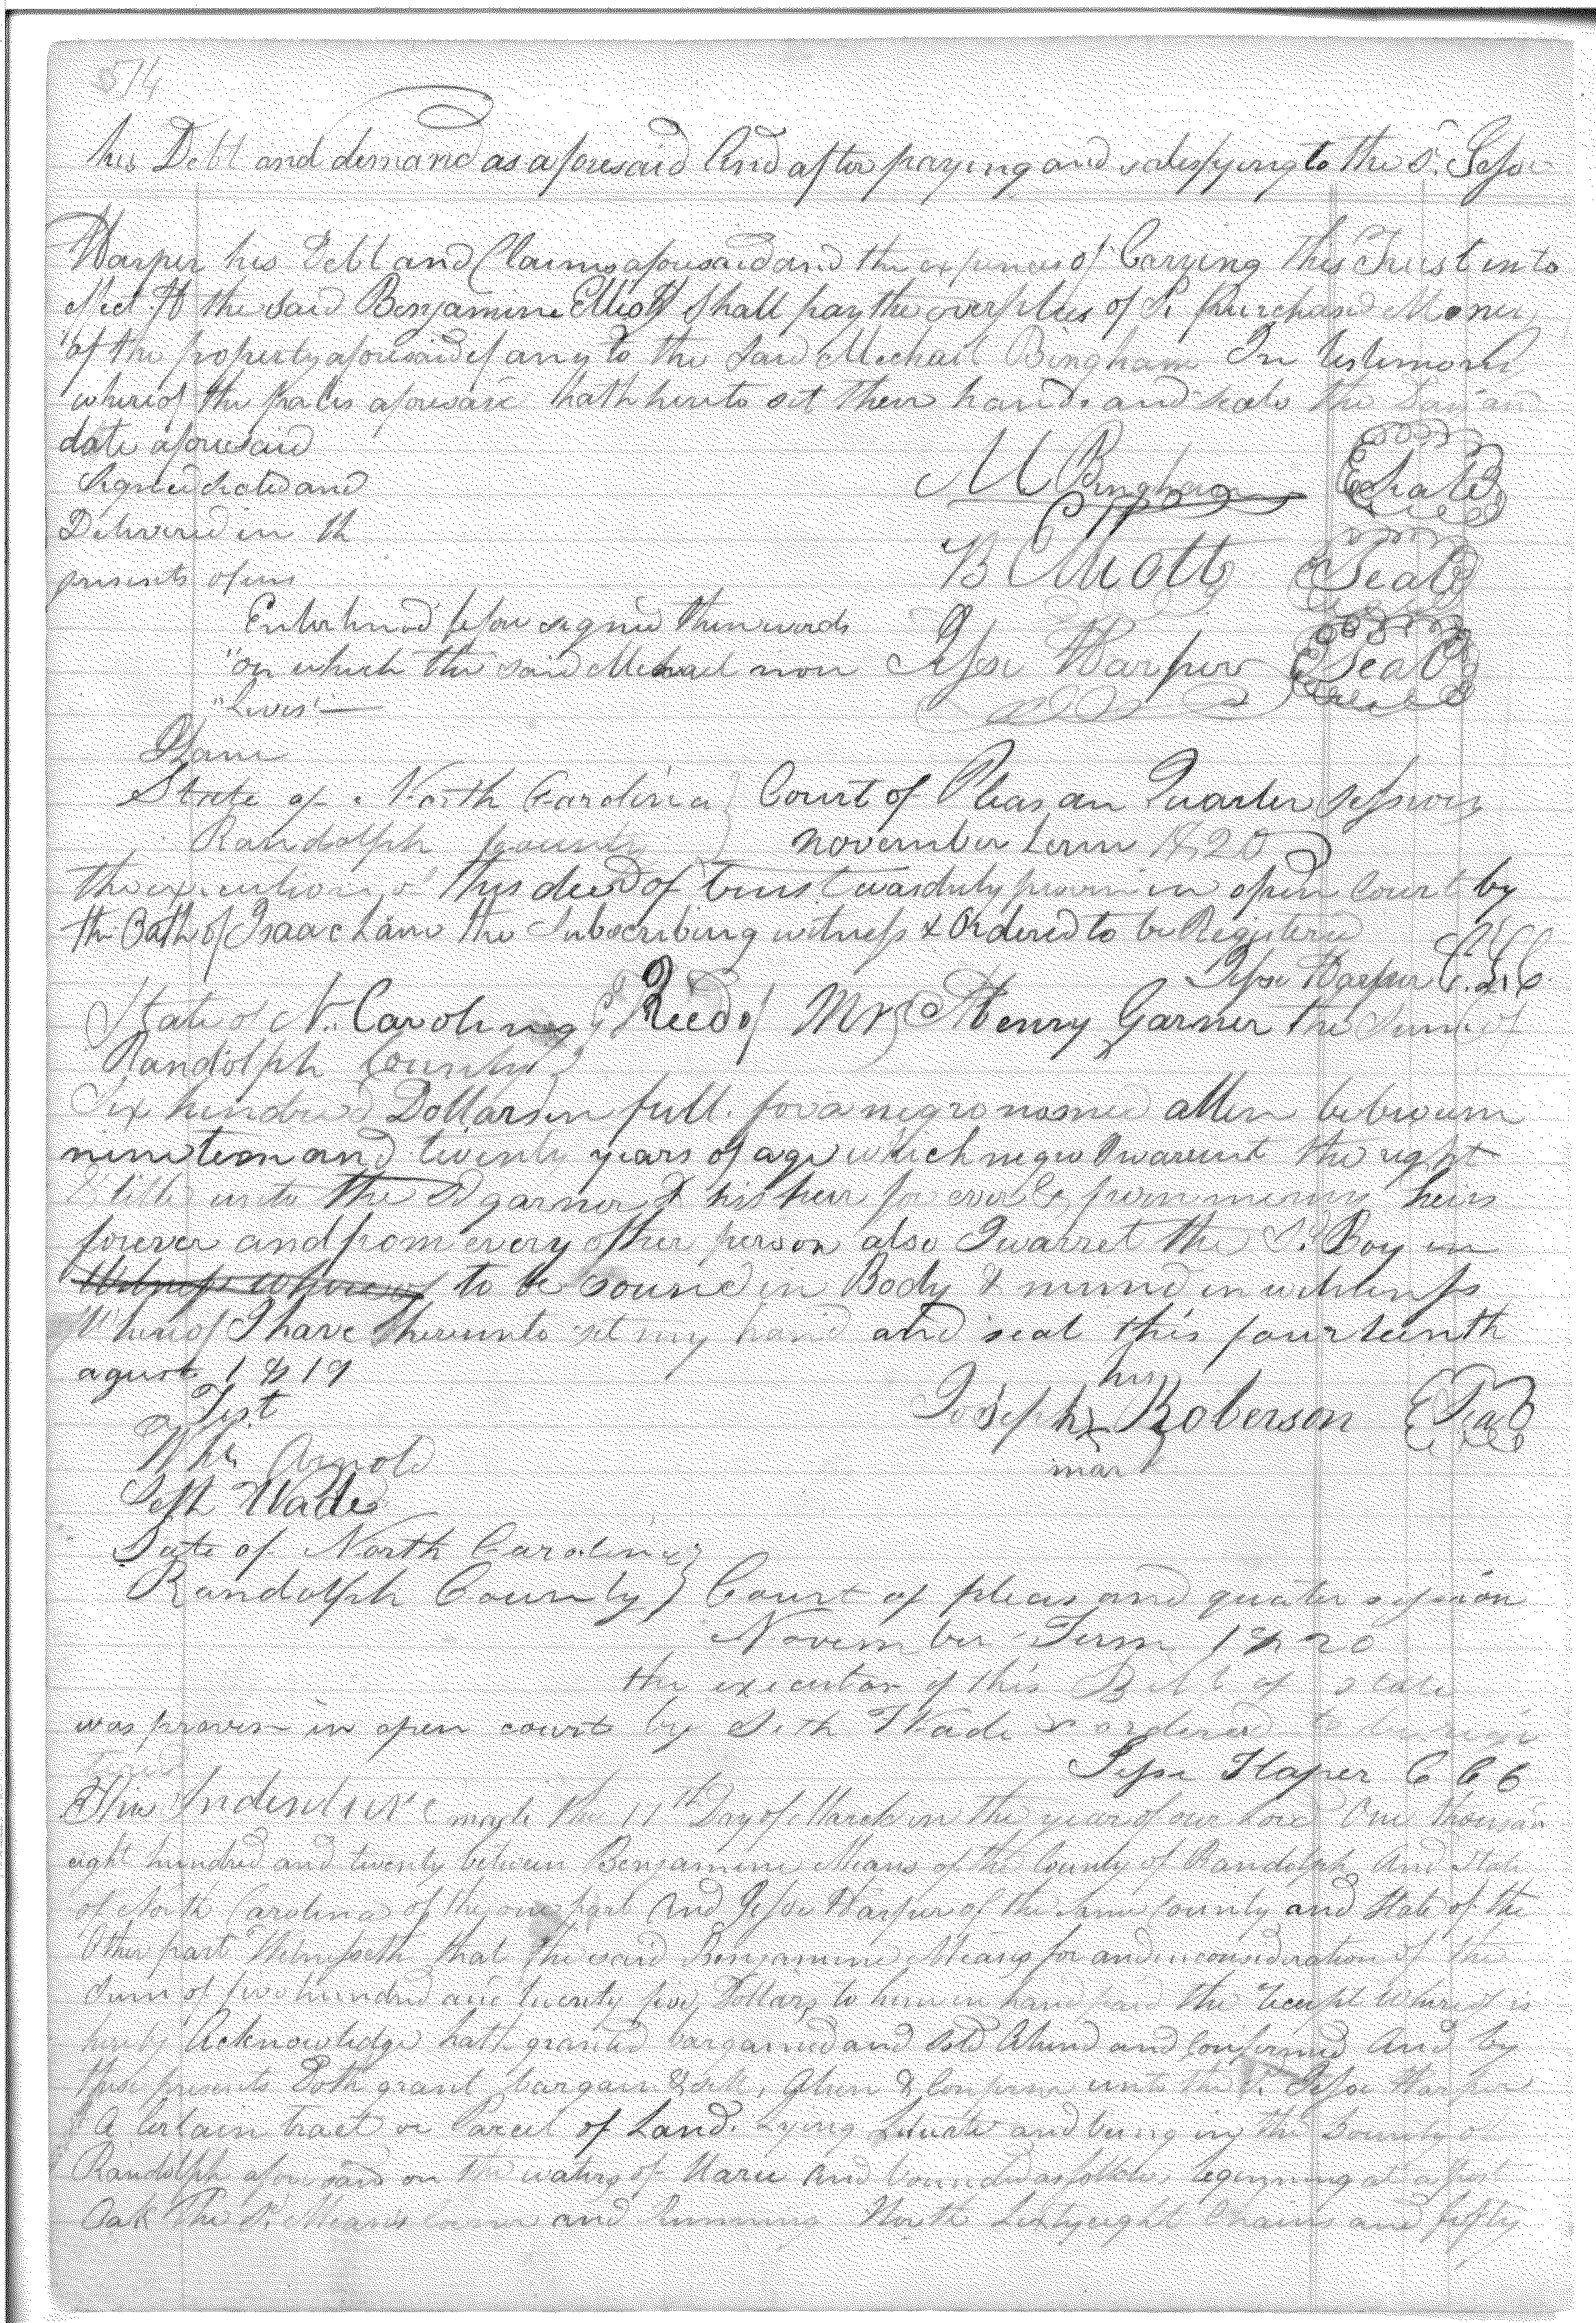 514
his Debt and demand as aforesaid And after paying and satisfying to the sd. Jesse
Harper his Debt and Claims aforesaid and the expences of Carying this Trust into
the said Benjamine Elliott shall pay the overplus of sd. Purchase Money
of the property aforesaid if any to the said Michail Bingham In testimony
whereof the parties aforesaid hath hereto set their hands and seals the Day and
date aforesaid
Signed sealed and
Delivered in th
presents of us
M Bingham Seal
B Elliott Seal
Enterlined before signed then words
"on which the said Michael now
"Lives"
Jesse Harper Seal
I Lam
State of North Carolina } Court of Pleas an Quarter sessions
Randolph County } november term 1820
the execution of this deed of trust was duly proven in open court by
the Oath of Isaac Lam the Subscribing witness & Ordered to be Registered
Jesse Harper C.C.C.
State of N. Carolina } Reed of Mr Henry Garner the Sum of
Randolph County }
Six hundred Dollars in full for a negro named allen between
nineteen and twenty years of age which negro I warent the right
& title unto the sd garner & his heir for ever & from me my heirs
forever and from every other person also I warret the sd. Boy in
Witness whereof to be sound in Body & mind in witness
Whereof I have thereunto set my hand and seal this fourteenth
agust 1819
Test
Wm. Arnold
Seth Wade
his
Joseph Roberson Seal
mar
Sate of North Carolina }
Randolph County } Court of pleas and quater session
November Term 1820
the execution of this Bill of sale
was proven in open court by Seth Wade & ordered to be regis
tered
Jesse Haper C C C
This Indenture made the 11th Day of March in the year of our Lord One thousan
eight hundred and twenty between Benjamine Means of the County of Randolph And State
of North Carolina of the one part And Jesse Harper of the same county and State of the
Other part Witnesseth that the said Benjamine Means for and in consideration of the
Sum of two hundred and twenty five Dollars to him in hand paid the receipt whereof is
hereby Acknowledge hath granted bargained and sold Aliend and Confirmed And by
these presents Doth grant bargain & sell, Alien & Confirm unto the sd. Jesse Harper
A Certain tract or Parcel of Land. Lying Situate and being in the County of
Randolph aforesaid on the waters of Uarie and bounded as follows beginning at a post
Oak The sd. Means corner and Running North Sixty eight Chains and fifty